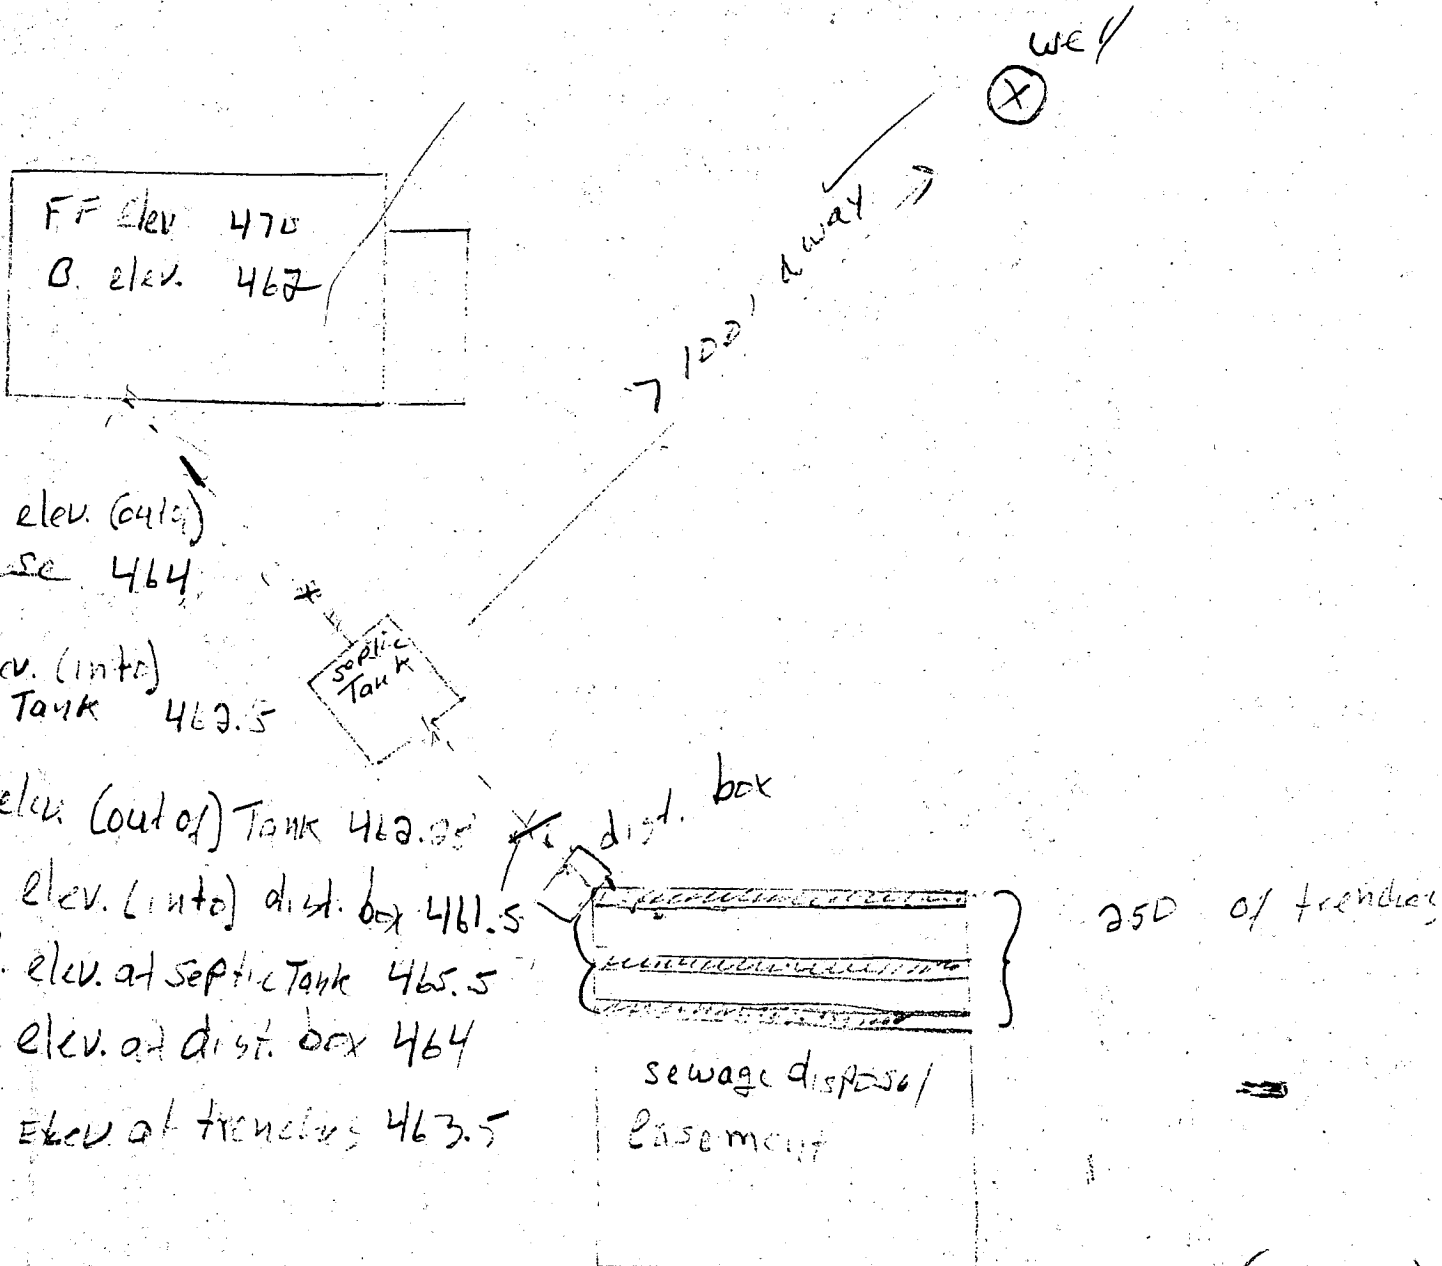 well
FF Elev 470
B. elev. 462
> 100' away
elev. (out of)
se 464
ev. (into)
Tank 462.5
septic
Tank
elev. (out of) Tank 462.25
dist. box
elev. (into) dist. box 461.5
250 of trenches
elev. at septic Tank 465.5
elev. at dist. box 464
Elev at trenches 463.5
sewage disposal
easement